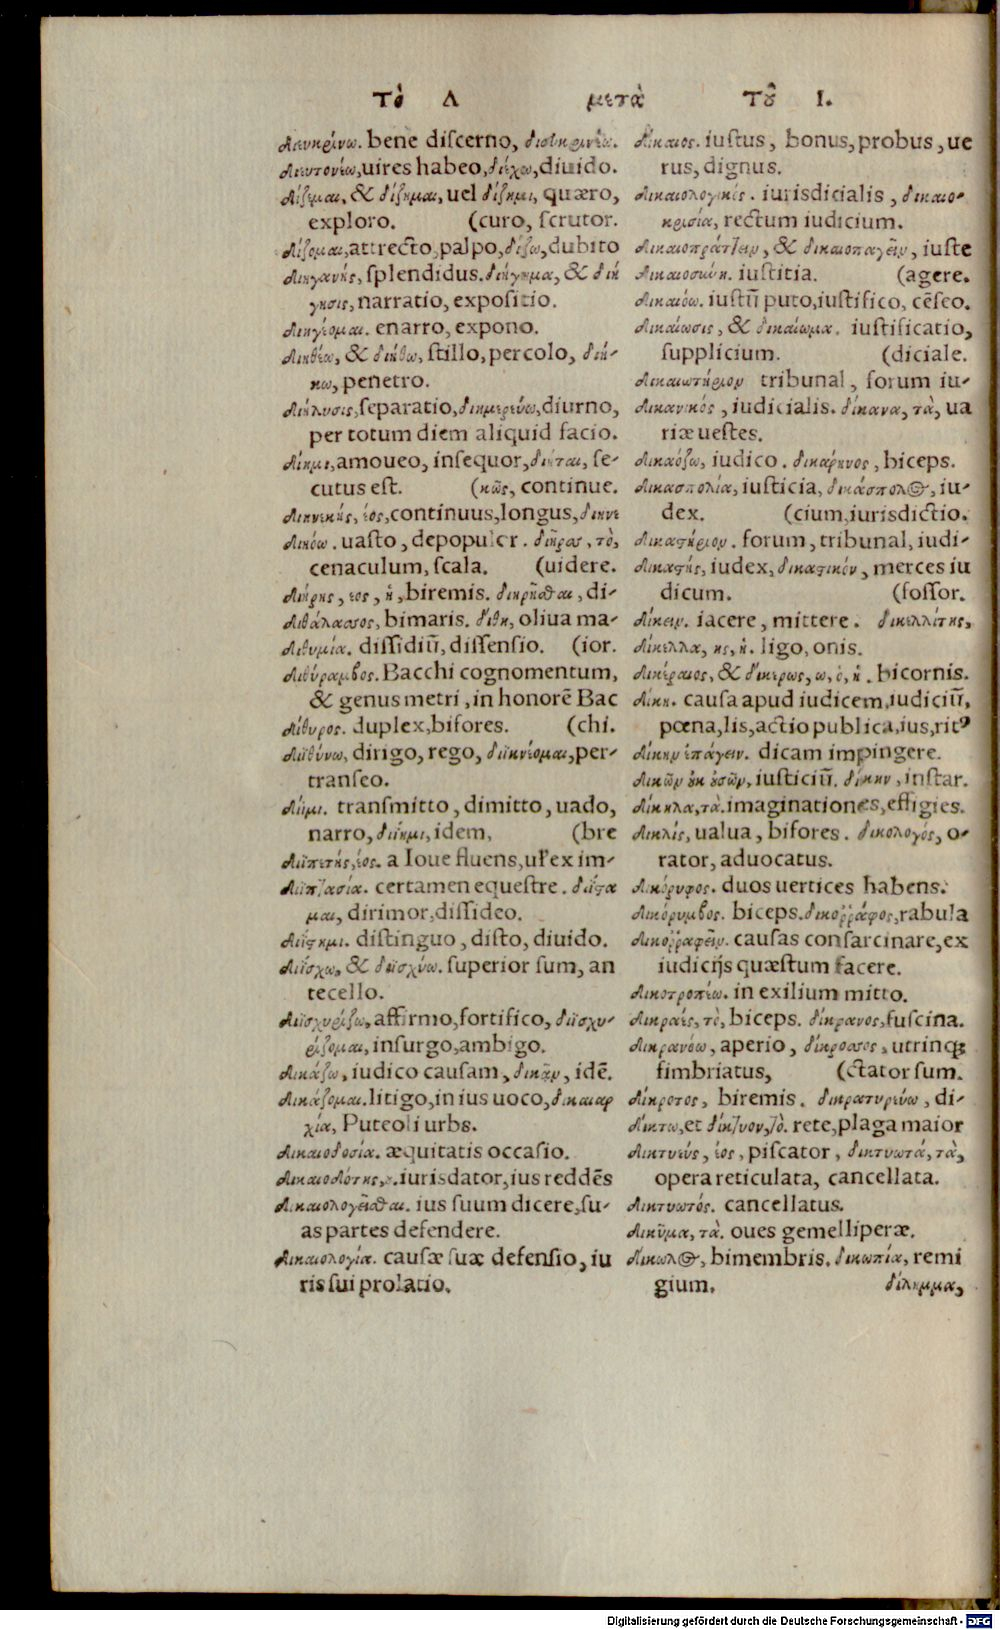 Τὸ Δ μετὰ τοῦ Ι.
Διευκρίνω. bene discerno, διευκρινέω.
Διευτονέω, uires habeo, διέχω, diuido.
Δίζεμαι, & δίζημαι, uel δίζημι, quæro,
exploro. (curo, scrutor.
Δίζομαι, attrecto, palpo, δίζω, dubito
Διηγανής, splendidus. διήγημα, & διή
γησις, narratio, expositio.
Διηγέομαι. enarro, expono.
Διηθέω, & διήθω, stillo, percolo, διή-
κω, penetro.
Διήλυσις, separatio, διημερεύω, diurno,
per totum diem aliquid facio.
Δίημι, amoueo, insequor, se-
cutus est. (κῶς, continue.
Διηνεκής, έος, continuus, longus, διηνε
Διηόω. uasto, depopulor. διῆρας, τὸ,
cenaculum, scala. (uidere.
Διήρης, εος, ἡ, biremis. διηρῆσθαι, di-
Διθάλασσος, bimaris. δίθη, oliua ma-
Διθυμία. dissidiū, dissensio. (ior.
Διθύραμβος. Bacchi cognomentum,
& genus metri, in honorē Bac
Δίθυρος. duplex, bifores. (chi.
Διϊθύνω, dirigo, rego, διϊκνέομαι, per-
transeo.
Δίϊμι. transmitto, dimitto, uado,
narro, διΐημι, idem, (bre
Διϊπετής, έος. a Ioue fluens, uł ex im-
Διϊππασία. certamen equestre. διΐστα
μαι, dirimor, dissideo.
Διΐστημι. distinguo, disto, diuido.
Διΐσχω, & διϊσχύω. superior sum, an
tecello.
Διϊσχυρίζω, affirmo, fortifico, διϊσχυ-
ρίζομαι, insurgo, ambigo.
Δικάζω, iudico causam, δικᾶν, idē.
Δικάζομαι. litigo, in ius uoco, δικαιαρ
χία, Puteoli urbs.
Δικαιοδοσία. æquitatis occasio.
Δικαιοδότης, iurisdator, ius reddēs
Δικαιολογεῖσθαι. ius suum dicere, su-
as partes defendere.
Δικαιολογία. causæ suæ defensio, iu
ris sui prolatio.
Δίκαιος. iustus, bonus, probus, ue
rus, dignus.
Δικαιολογικός. iurisdicialis, δικαιο-
κρισία, rectum iudicium.
Δικαιοπράττειν, & δικαιοπαγεῖν, iuste
Δικαιοσύνη. iustitia. (agere.
Δικαιόω. iustū puto, iustifico, cēseo.
Δικαίωσις, & δικαίωμα. iustificatio,
supplicium. (diciale.
Δικαιωτήριον tribunal, forum iu-
Δικανικός, iudicialis. δίκανα, τὰ, ua
riæ uestes.
Δικαόζω, iudico. δικάρηνος, biceps.
Δικασπολία, iusticia, δικάσπολος, iu-
dex. (cium, iurisdictio.
Δικαστήριον. forum, tribunal, iudi-
Δικαστής, iudex, δικαστικόν, merces iu
dicum. (fossor.
Δίκειν. iacere, mittere. δικελλίτης,
Δίκελλα, ης, ἡ. ligo, onis.
Δικέραιος, & δίκερως, ω, ὁ, ἡ. bicornis.
Δίκη. causa apud iudicem, iudiciū,
pœna, lis, actio publica, ius, ritꝰ
Δίκην ἐπάγειν. dicam impingere.
Δικῶν οὐκ οὐσῶν, iusticiū. δίκην, instar.
Δίκηλα, τὰ. imaginationes, effigies.
Δικλίς, ualua, bifores. δικολογός, o-
rator, aduocatus.
Δικόρυφος. duos uertices habens.
Δικόρυμβος. biceps. δικοῤῥάφος, rabula
Δικοῤῥαφεῖν. causas consarcinare, ex
iudicijs quæstum facere.
Δικοτροπέω. in exilium mitto.
Δικραές, τὸ, biceps. δίκρανος, fuscina.
Δικρανόω, aperio, δίκροσσος, utrinqꝫ
fimbriatus, (ctator sum.
Δίκροτος, biremis. δικρατυρεύω, di-
Δίκτω, et δίκτυον, τὸ. rete, plaga maior
Δικτυεύς, έος, piscator, δικτυωτά, τὰ,
opera reticulata, cancellata.
Δικτυωτός. cancellatus.
Δικῦμα, τὰ. oues gemelliperæ.
Δίκωλος, bimembris. δικωπία, remi
gium. δίλημμα,
Digitalisierung gefördert durch die Deutsche Forschungsgemeinschaft - DFG